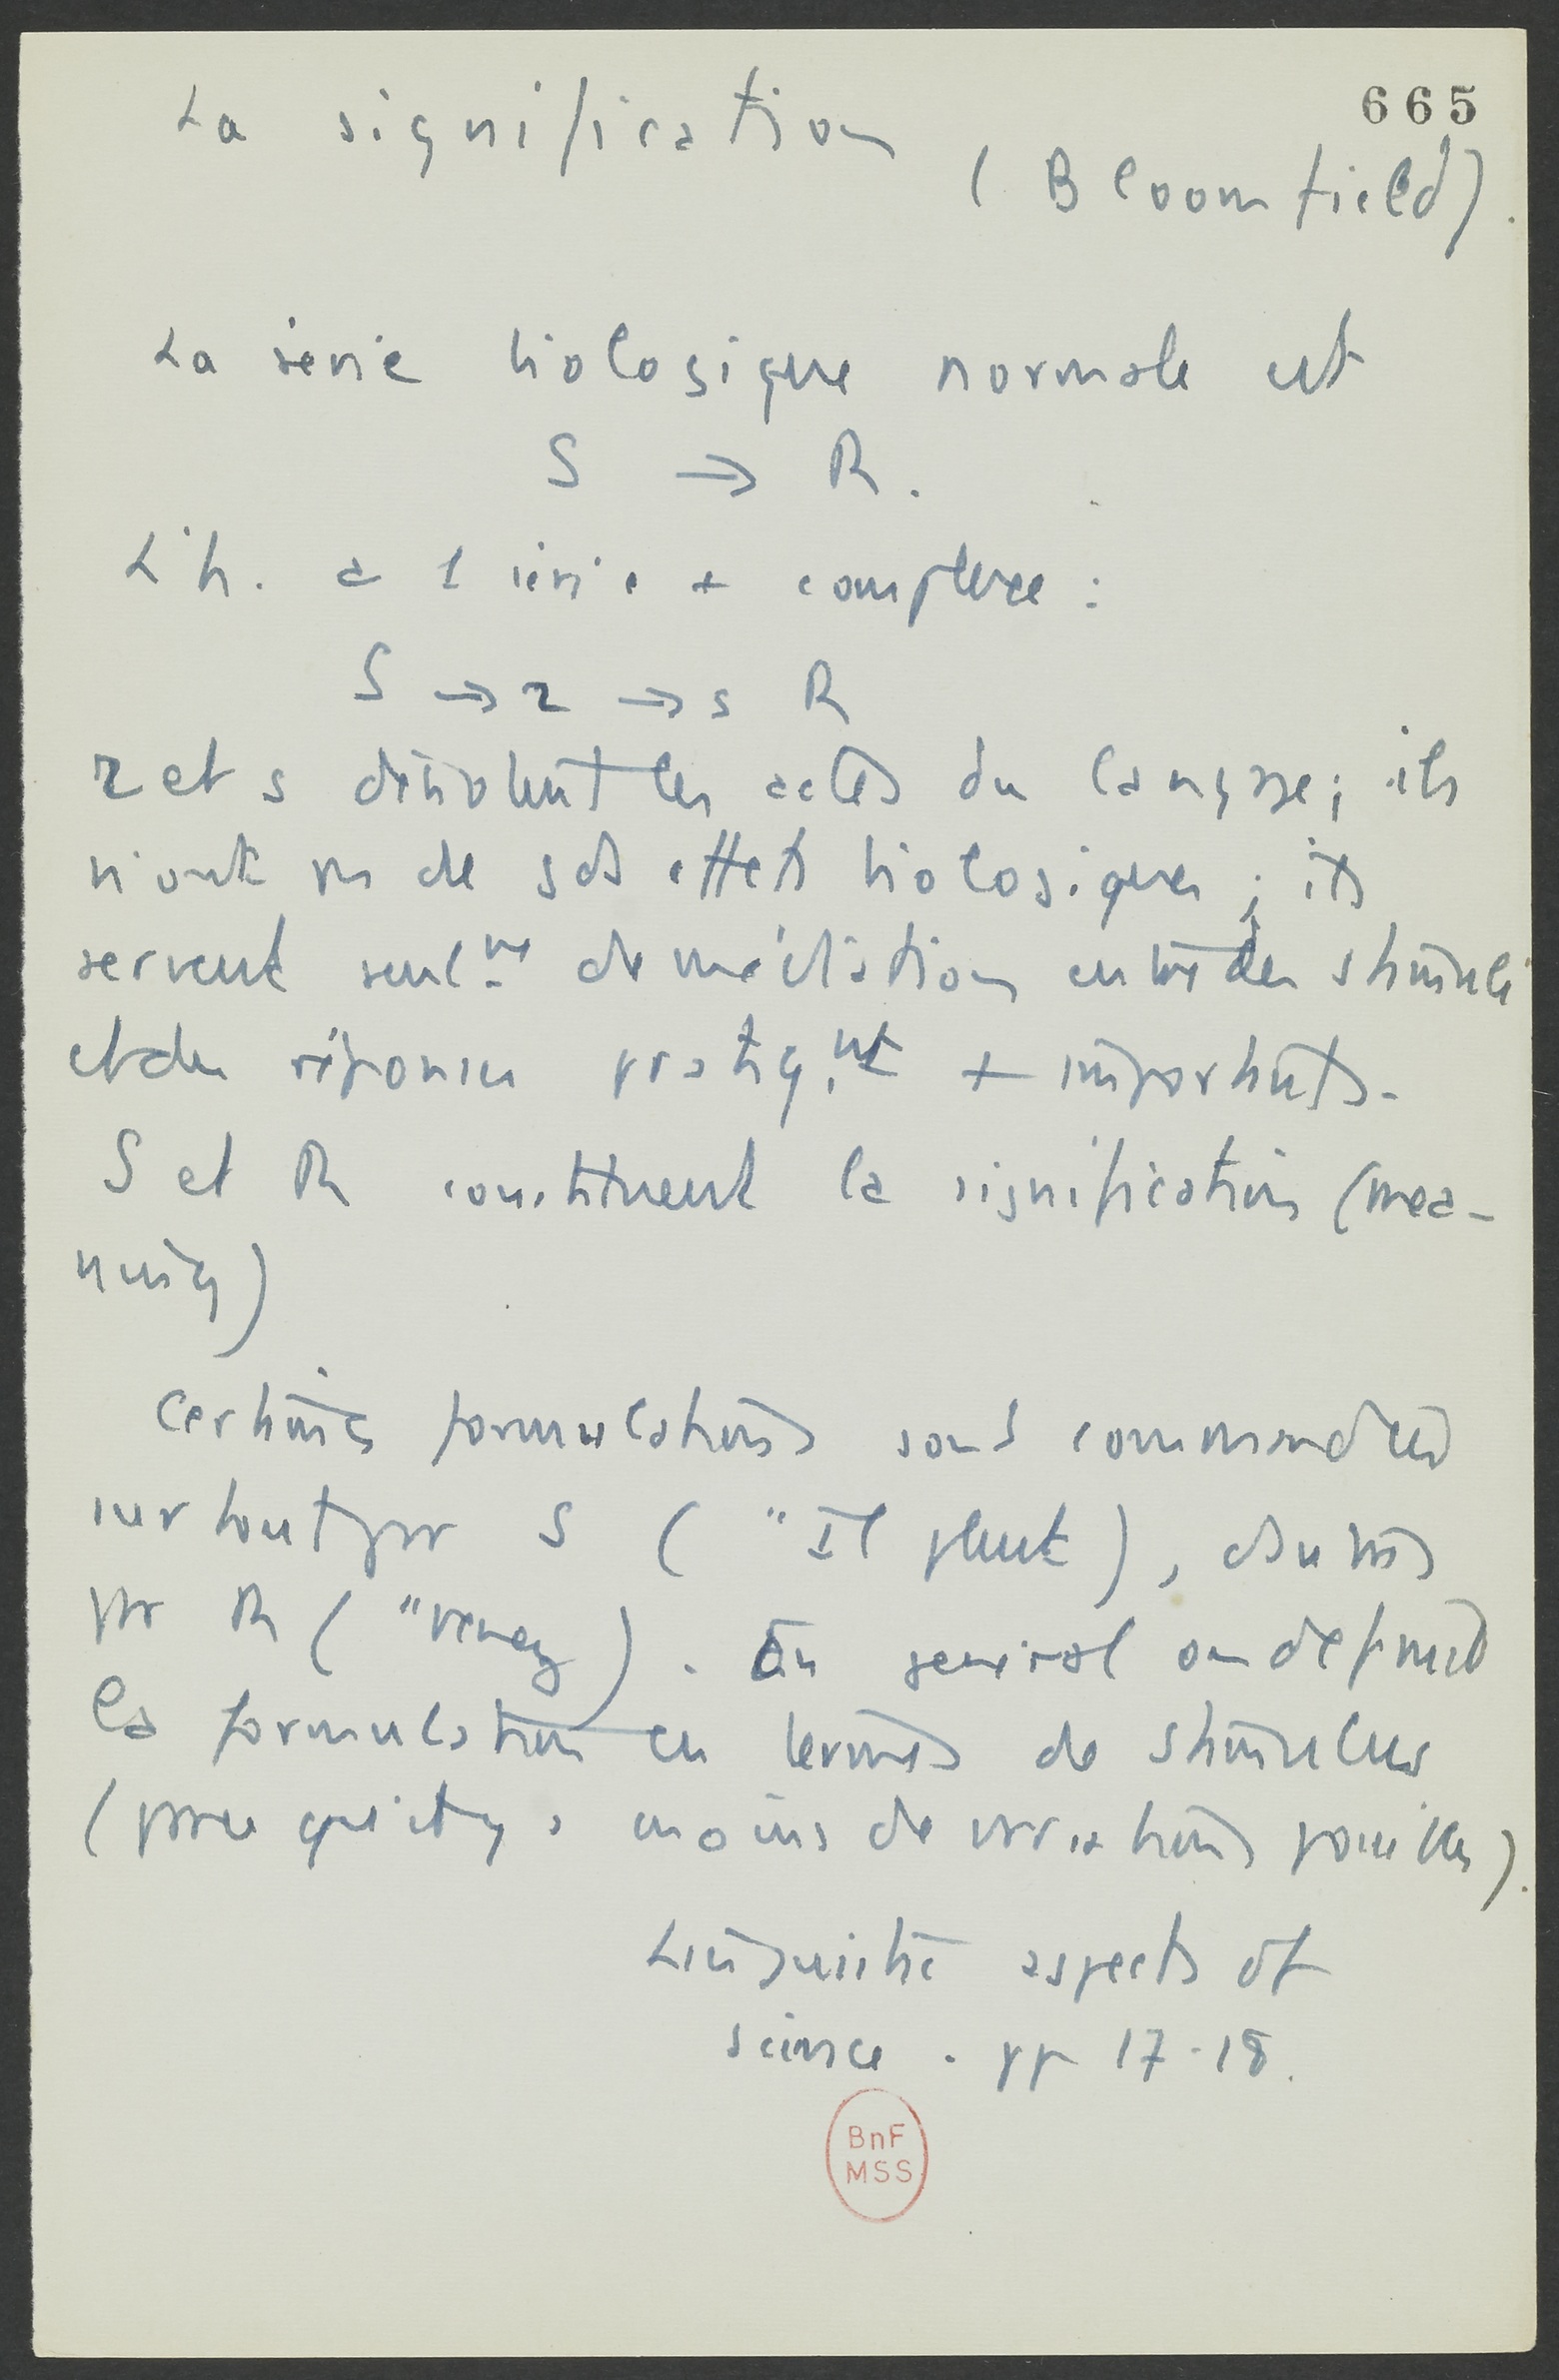 665
La signification
(Bloomfield).
La série biologique normale est
S → R.
L'h. a 1 série + complexe :
S → r → s R
r et s désignent les actes du langage ; ils
n'ont pas de gds effets biologiques ; ils
servent seulmt de médiation entre des stimuli
et des réponses pratiqmt + importants.
S et R constituent la signification (mea-
ning)
Certaines formulations sont commandées
surtout par S ( "Il pleut ), d'autres
par R ( "venez ). En général on définit
la formulation en termes de stimulus
(parce qu'il y a moins de variations possibles).
Linguistic aspects of
science . pp 17-18.
BnF
MSS